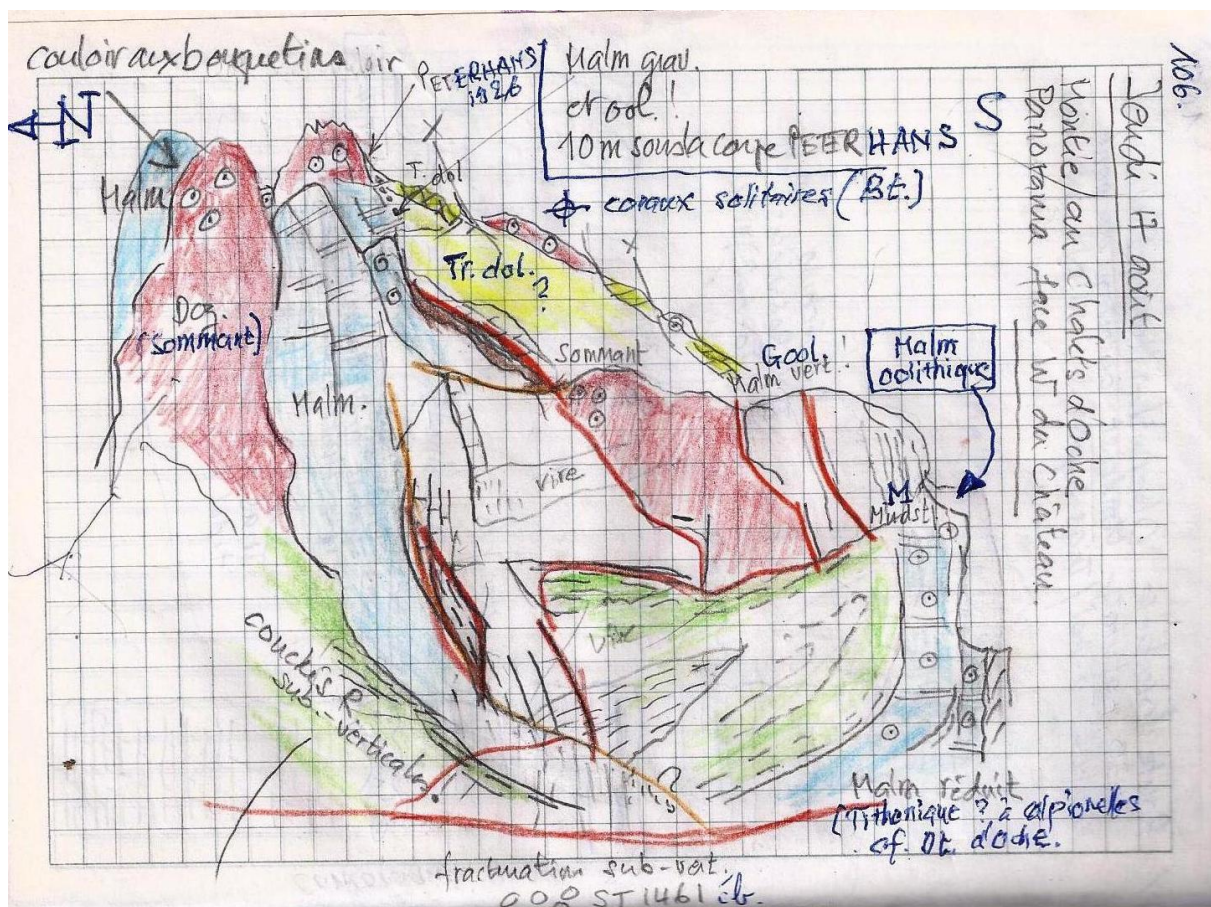 106.
Jeudi 17 août
Montée au Chalets d'oche
Panorama face W du Château.
couloir aux bouquetins
N
PETERHANS
1926
Malm grav.
et ool.!
10 m sous la coupe PETERHANS
S
coraux solitaires (Bt.)
T. dol
Malm
Tr. dol.
?
Dog.
(Sommant)
Sommant
Gool.!
Malm vert.!
Malm
oolithique
Malm.
vire
M
Mudst
vire
couches R
sub-verticales.
?
Malm réduit
(Tithonique ? à calpionelles
cf. Dt. d'oche.
fracturation sub-vert.
ST 1461 ib.